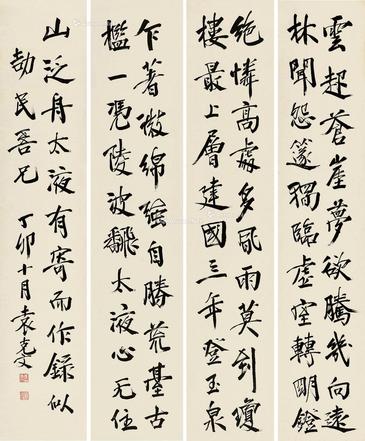 雲起蒼崖夢欲騰幾向遠
林聞怨篴獨臨虛室轉明鐙
絶憐高處多風雨莫到瓊
樓最上層建國三年登玉泉
乍著微綿強自勝荒臺古
檻一憑陵波飜太液心无住
山泛舟太液有寄而作錄似
劼民善兄 丁卯十月袁克文